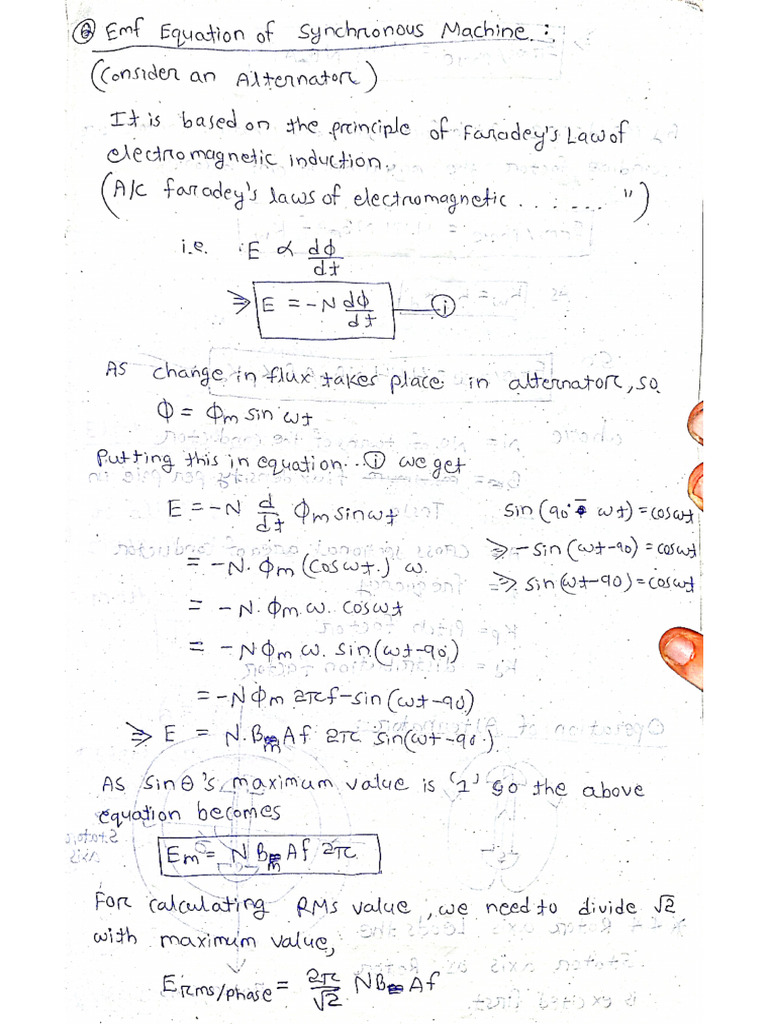 ⑥ Emf Equation of Synchronous Machine :
(Consider an Alternator)
It is based on the principle of Faradey's Law of
electromagnetic induction.
(A/c faradey's laws of electromagnetic ........ ")
i.e. E ∝ dϕ/dt
⇒ E = -N dϕ/dt —— ①
As change in flux takes place in alternator, so
ϕ = ϕm sin ωt
Putting this in equation.. ① we get
E = -N d/dt ϕm sinωt
= -N. ϕm (cosωt.) ω.
= -N. ϕm ω. cosωt
= -Nϕm ω. sin(ωt-90.)
= -Nϕm 2πf-sin(ωt-90)
⇒ E = N.Bm Af 2π sin(ωt-90.)
sin (90° - ωt) = cosωt
⇒ -sin (ωt-90) = cosωt
⇒ sin (ωt-90) = cosωt
As sinθ's maximum value is '1' so the above
equation becomes
Em = N Bm Af 2π
For calculating RMS value, we need to divide √2
with maximum value,
Erms/phase = 2π/√2 NBm Af